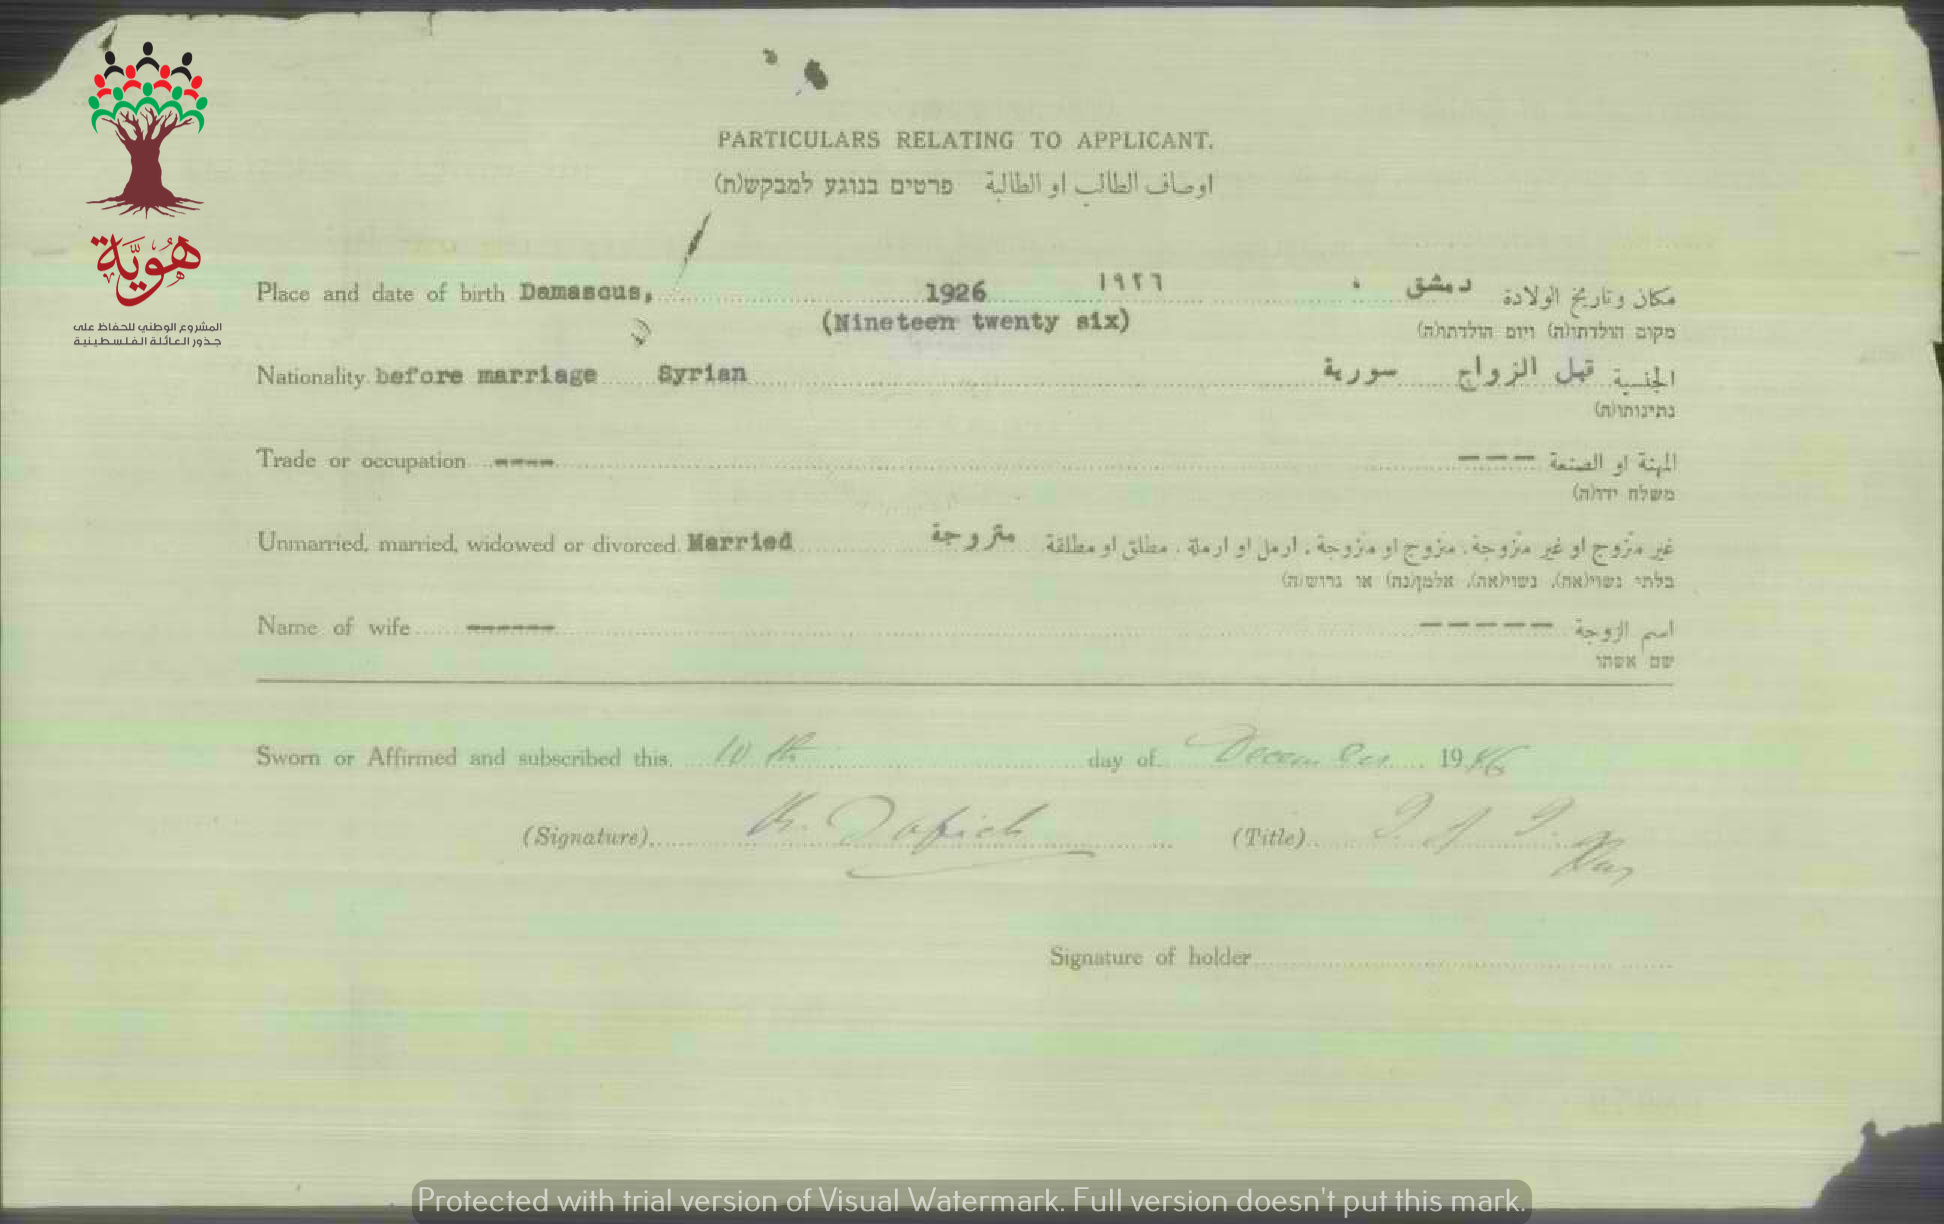 هوية
المشروع الوطني للحفاظ على
جذور العائلة الفلسطينية
PARTICULARS RELATING TO APPLICANT.
اوصاف الطالب او الطالبة פרטים בנוגע למבקש(ת)
Place and date of birth Damascus, 1926 ١٩٢٦ دمشق ، مكان وتاريخ الولادة
(Nineteen twenty six) מקום הולדתו(ה) ויום הולדתו(ה)
Nationality before marriage Syrian سورية قبل الزواج الجنسية
נתינותו(ה)
Trade or occupation ---- --- المهنة او الصنعة
משלח ידו(ה)
Unmarried, married, widowed or divorced Married متزوجة غير متزوج او غير متزوجة، متزوج او متزوجة، ارمل او ارملة، مطلق او مطلقة
בלתי נשוי(אה), נשוי(אה), אלמן(נה) או גרוש(ה)
Name of wife ------ ----- اسم الزوجة
שם אשתו
Sworn or Affirmed and subscribed this 10th day of December 1946
(Signature) (Title)
Signature of holder
Protected with trial version of Visual Watermark. Full version doesn't put this mark.